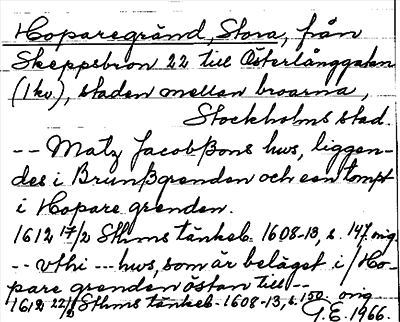 Hoparegränd, Stora, från
Skeppsbron 22 till Österlånggatan
(1 kv.), staden mellan broarna,
Stockholms stad.
-- Matz Jacobßons hws, liggen-
des i Brunßgrenden och een tompt
i Hopare grenden.
1612 17/2 Sthms tänkeb. 1608-13, s. 147. orig.
-- vthi --- hws, som är beläget i / Ho-
pare grenden östan till --
1612 22/2 Sthms tänkeb. 1608-13, s. 150. orig
G.E. 1966.